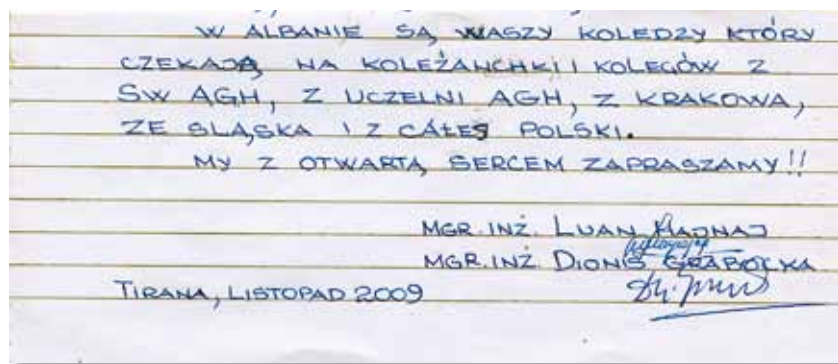 W ALBANIE SĄ WASZY KOLEDZY KTÓRY
CZEKAJĄ NA KOLEŻANCHKI I KOLEGÓW Z
SW AGH, Z UCZELNI AGH, Z KRAKOWA,
ZE SLĄSKA I Z CAŁEJ POLSKI.
MY Z OTWARTĄ SERCEM ZAPRASZAMY!!
MGR. INŻ. LUAN HAJNAJ
MGR. INŻ. DIONIS GRABOCKA
TIRANA, LISTOPAD 2009